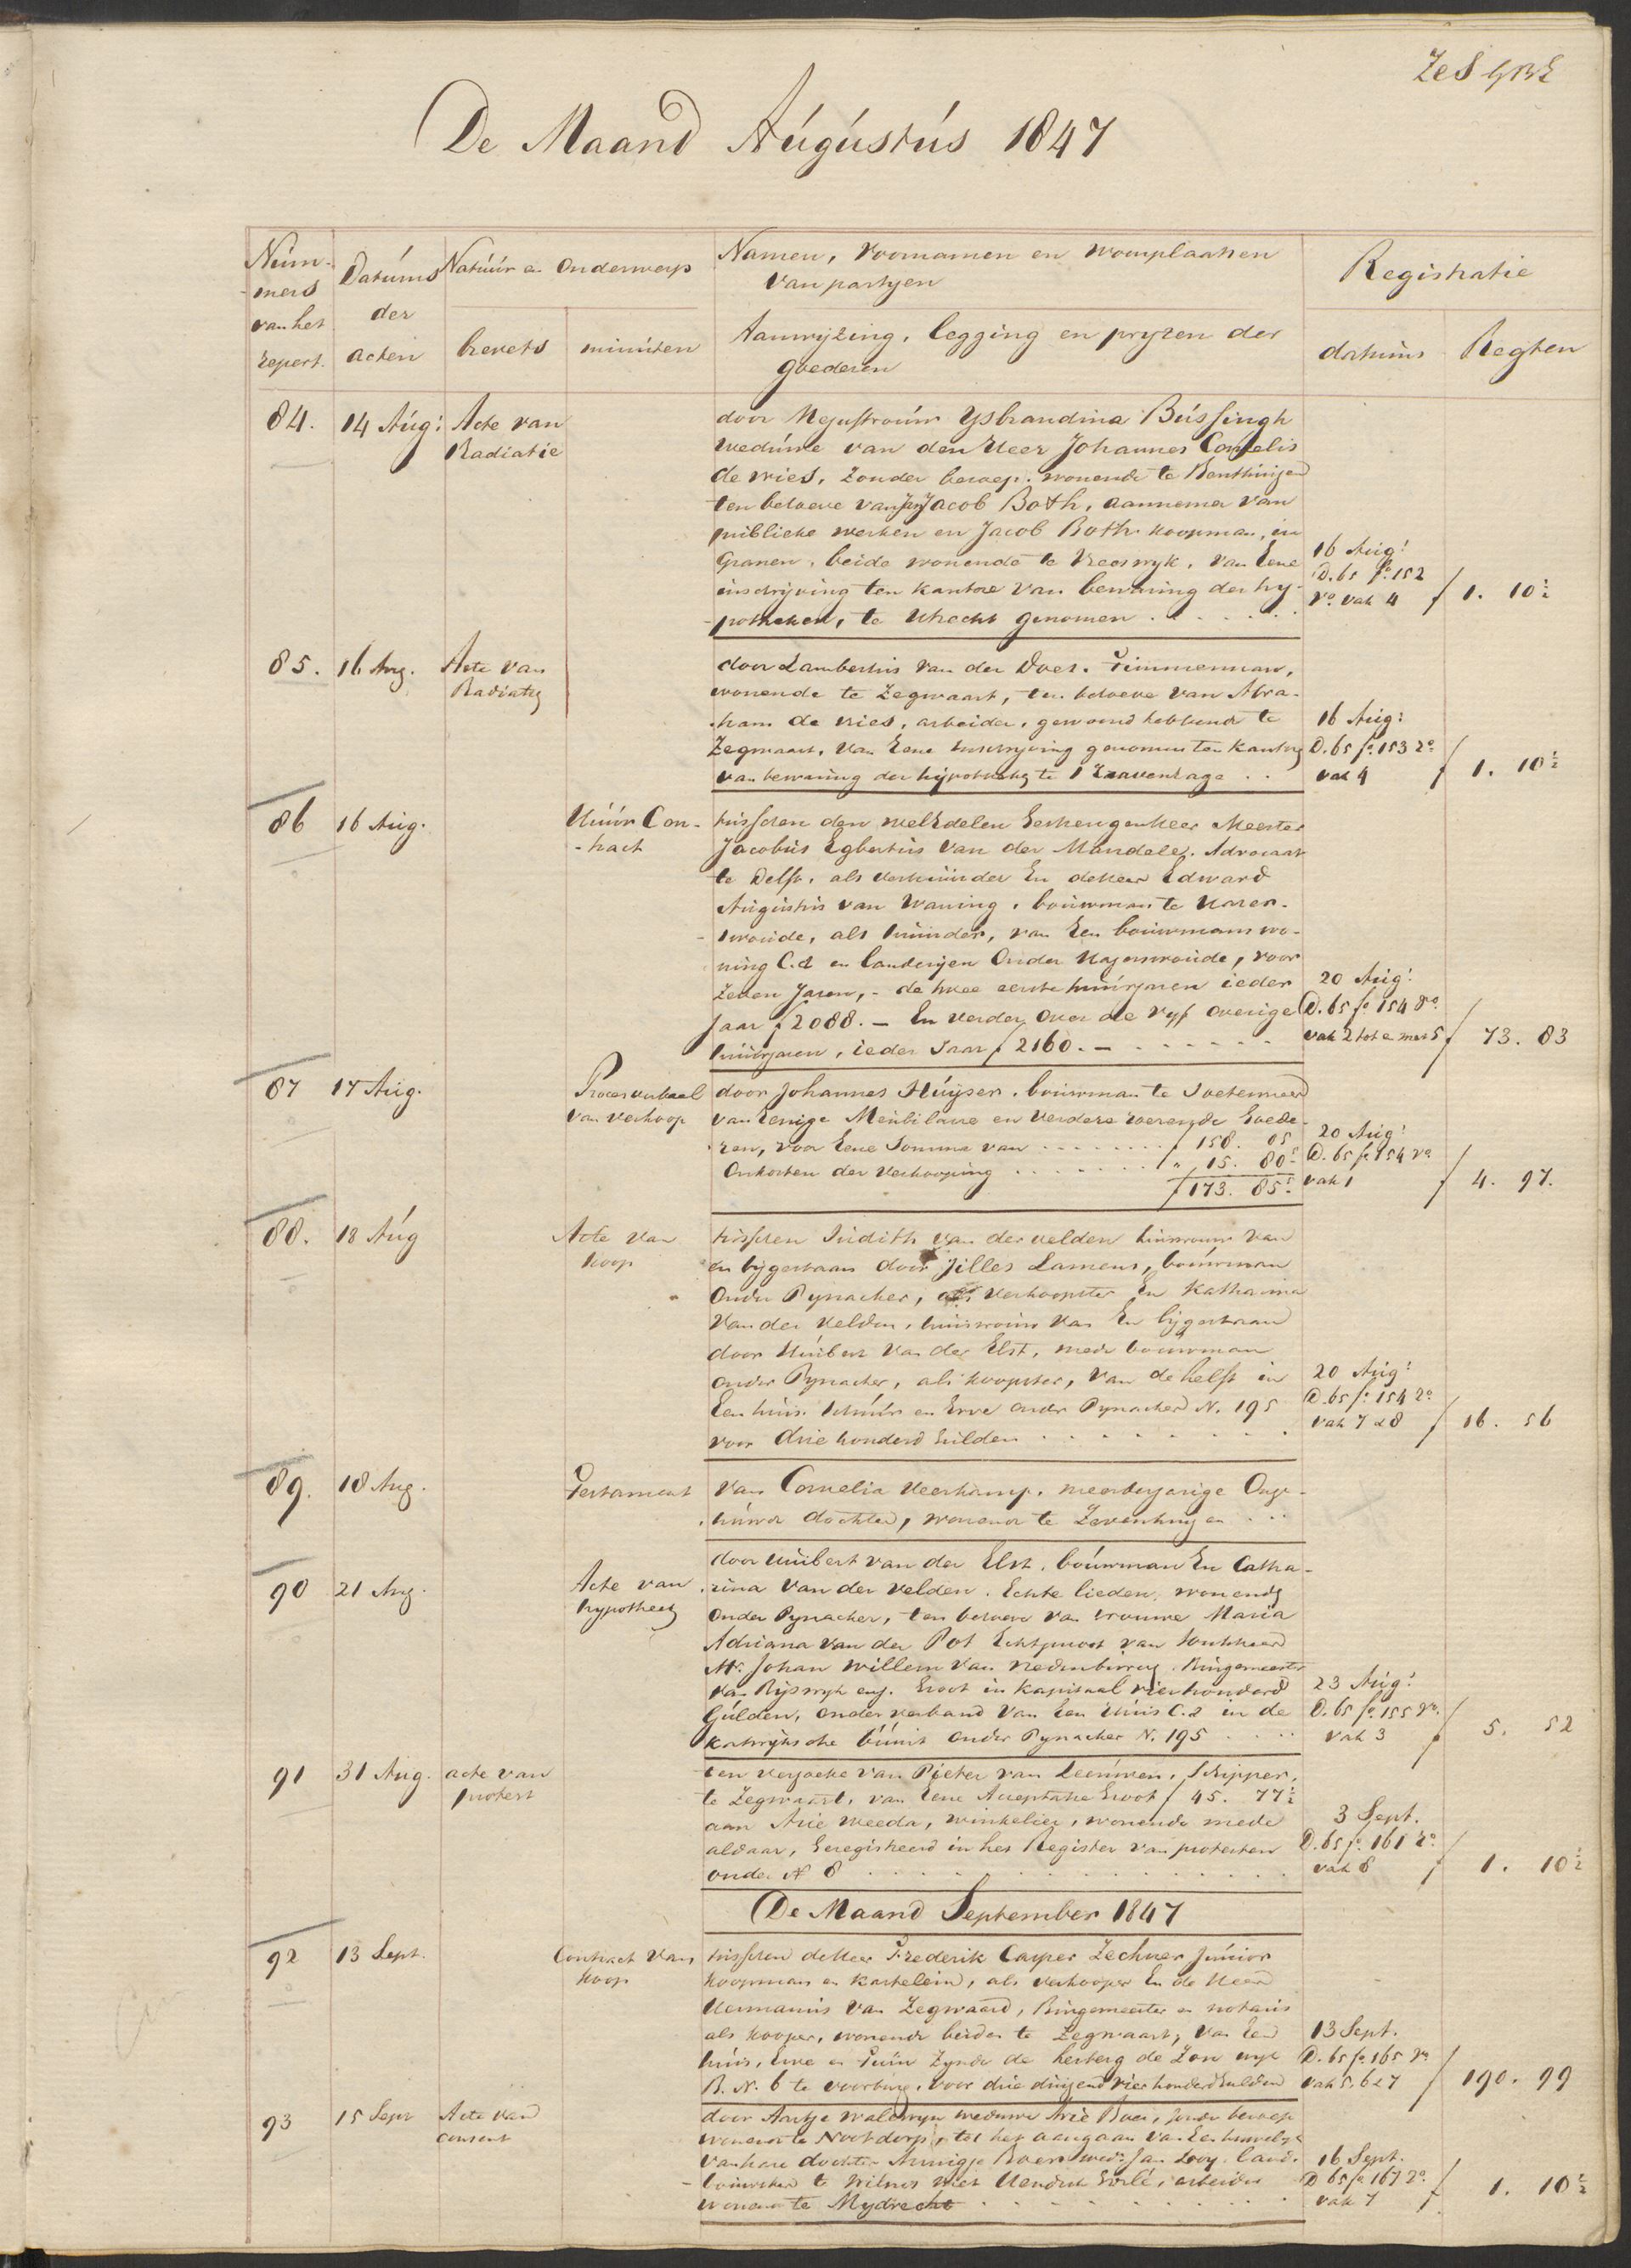 Zes
De Maand Augustus 1847
Num-
mers
van het
repert.
Datums
der
acten
Natuur en Onderwerp
brevets
minuten
Namen, voornamen en woonplaatsen
van partyen
Aanwyzing, legging en pryzen der
goederen
Registratie
datums
Regten
84. 14 Aug: Acte van
Radiatie
door Mejufvrouw Ysbrandina Bussingh
weduwe van den Heer Johannes Cornelis
de Vries, zonder beroep, wonende te Benthuizen
ten behoeve van Jan Jacob Both, aannemer van
publieke werken en Jacob Both koopman, in
Granen, beide wonende te Vreeswyk, van Eene
inschryving ten kantore van bewaring der hy-
potheken, te Utrecht genomen . . . . . .
16 Aug:
D. 65 fo. 152
vo. vak 4
f 1. 10½
85. 16 Aug. Acte van
Radiatie
door Lambertus van der Does, Timmerman,
wonende te Zegwaart, ten behoeve van Abra-
ham de Vries, arbeider, gewoond hebbende te
Zegwaart, van Eene Inschryving genomen ten kantore
van bewaring der hypotheken te 's Gravenhage . .
16 Aug:
D. 65 fo. 153 ro
vak 4
f 1. 10½
86 16 Aug. Huur Con-
-tract
tusschen den welEdelen Gestrengen Heer Meester
Jacobus Egbertus van der Mandele, Advocaat
te Delft, als verhuurder En de Heer Edward
Augustus van Waning, bouwman te Hazers-
-woude, als huurder, van Een bouwmans wo-
ning C.a en landeryen Onder Hazerswoude, voor
Zeven Jaren, - de twee eerste huurjaren ieder
Jaar f 2088. — En verder over de vyf overige
huurjaren, ieder Jaar f 2160. — . . . . . .
20 Aug:
D. 65 fo 154 vo
vak 2 tot en met 5
f 73. 83
87 17 Aug. Proces verbaal
van verkoop
door Johannes Huyser, bouwman te Soetermeer
van Eenige Meubilaire en verdere roerende Goede-
ren, voor Eene Somma van . . . . . . . f 158. 05
Onkosten der Verkooping . . . . . . " 15. 80⁵
f 173. 85⁵
20 Aug:
D. 65 fo 154 vo
vak 1
f 4. 97.
88. 18 Aug Acte van
koop
tusschen Judith van der Velden huisvrouw van
en bygestaan door Jilles Lamens, bouwman
Onder Pynacker, als verkoopster En Katharina
Van der Velden, huisvrouw van En bygestaan
door Huibert van der Elst, mede bouwman
onder Pynacker, als koopster, van de helft in
Een huis, schuur en Erve onder Pynacker N. 195
voor drie honderd Gulden . . . . . . . . .
20 Aug:
D. 65 fo 154 ro
vak 7 & 8
f 16. 56
89. 18 Aug. Testament
van Cornelia Veerkamp, meerderjarige Onge-
huwde dochter, wonende te Zevenhuizen . . .
90 21 Aug. Acte van
hypotheek
door Huibert van der Elst, bouwman En Catha-
rina van der Velden, Echte lieden, wonende
Onder Pynacker, ten behoeve van vrouwe Maria
Adriana van der Pot Echtgenoot van
Mr. Johan Willem van Burgemeester
van Ryswyk enz. Groot in kapitaal vier honderd
Gulden, onder verband van Een Huis C.a in de
Katwyksche buurt Onder Pynacker N. 195 . . . .
23 Aug:
D. 65 fo. 155 vo.
vak 3
f 5. 52
91 31 Aug. acte van
protest
ten verzoeke van Pieter van Leeuwen, schipper,
te Zegwaart, van Eene Acceptatie Groot f 45. 77½
aan Arie Weeda, winkelier, wonende mede
aldaar, Geregistreerd in het Register van protesten
onder N 8 . . . . . . . . . . . . .
3 Sept.
D. 65 fo 161 ro
vak 8
f 1. 10½
De Maand September 1847
92 13 Sept. Contract van
koop
tusschen de Heer Frederik Casper Zechner Junior
koopman en kastelein, als verkooper En de Heer
Hermanus van Zegwaard, Burgemeester en notaris
als kooper, wonende beiden te Zegwaart, van Een
huis, Erve en Tuin Zynde de herberg de Zon wyk
B. N. 6 te Voorburg, voor drie duizend vier honderd Gulden
13 Sept.
D. 65 fo 165 vo
vak 5, 6 & 7
f 190. 99
93 15 Sept Acte van
consent
door Aartje Waldwyn weduwe Arie Boer, zonder beroep
wonende te Nootdorp, tot het aangaan van Een huwelyk
van hare dochter Boer wede. Jan Looy, land-
bouwster te Wilnis met Hendrik arbeider
wonende te Mydrecht . . . . . . . . . .
16 Sept.
D 65 fo 167 ro
vak 7
f 1. 10½